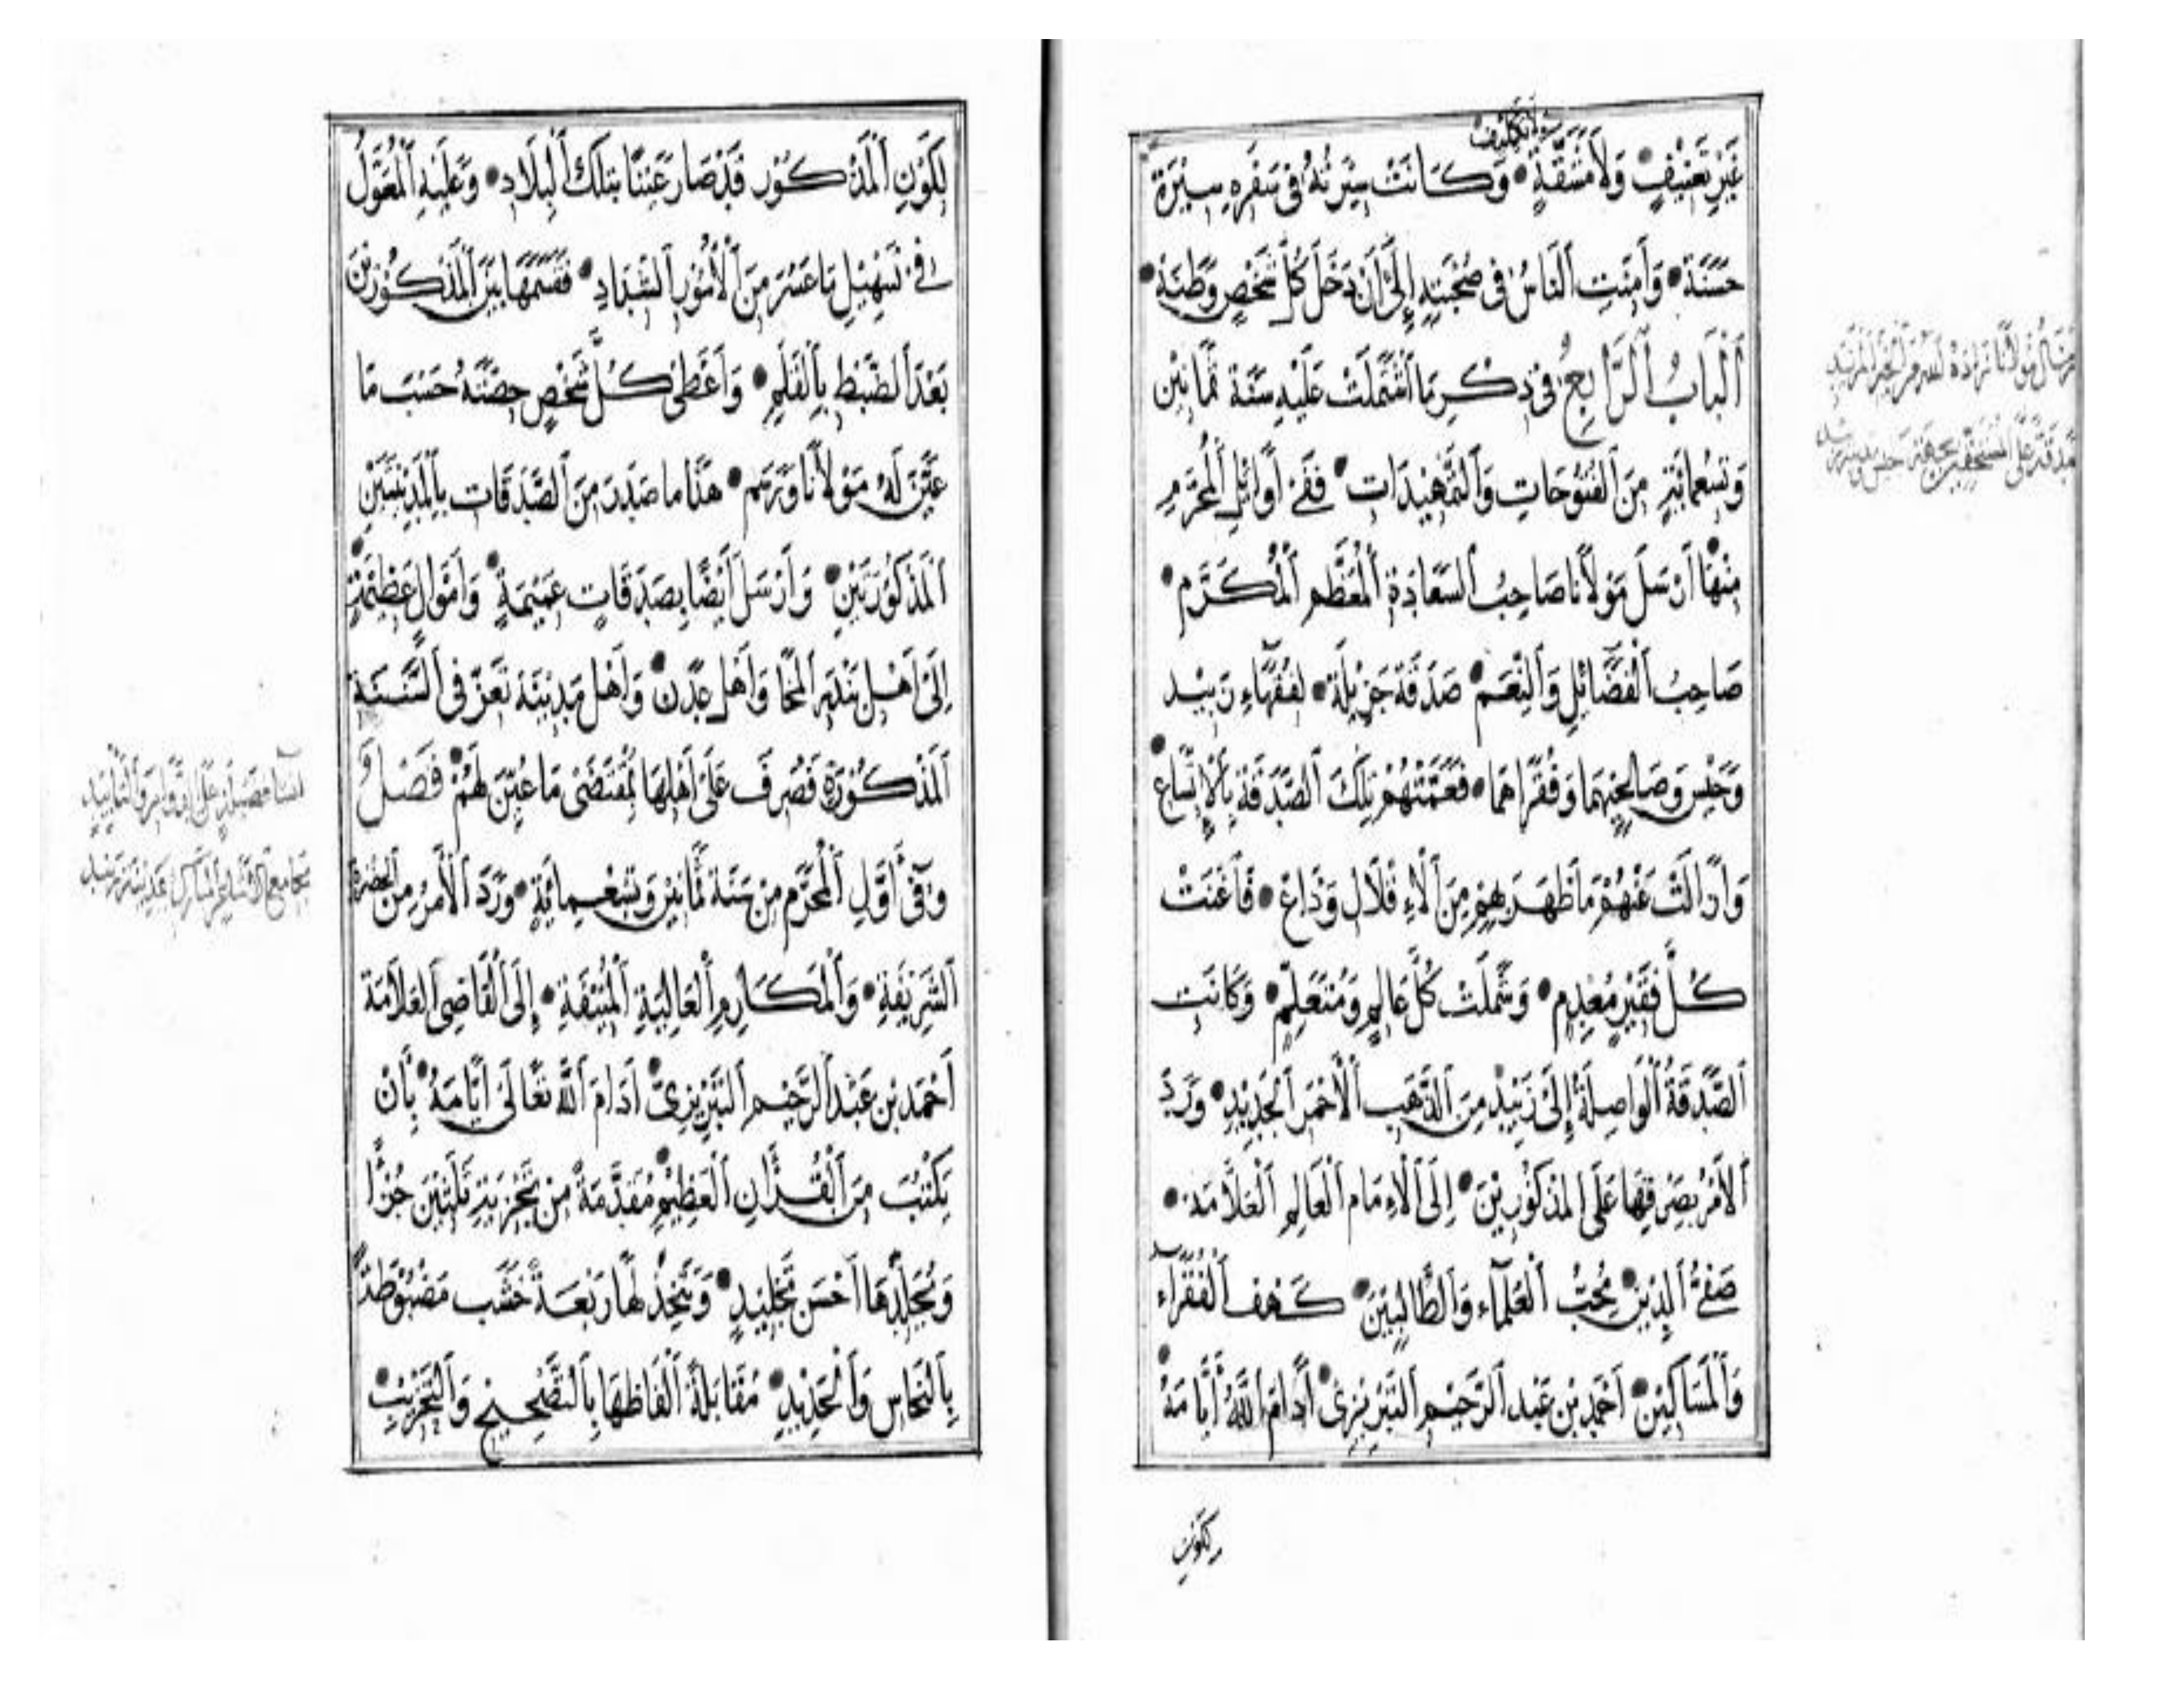 ولا تكليف
غَيْرِ تَعْنِيْفٍ وَلَا مَشَقَّةٍ وَكَانَتْ سِيْرَتُهُ فِي سَفَرِهِ سِيْرَةً
حَسَنَةً وَأَمِنَتِ النَّاسُ فِي صُحْبَتِهِ إِلَى أَنْ دَخَلَ كُلُّ شَخْصٍ وَطَنَهُ
اَلْبَابُ الرَّابِعُ فِي ذِكْرِ مَا اشْتَمَلَتْ عَلَيْهِ سَنَةُ ثَمَانِيْنَ
وَتِسْعِمِائَةٍ مِنَ الْفُتُوْحَاتِ وَالتَّمْهِيْدَاتِ فَفِي أَوَائِلِ الْمُحَرَّمِ
مِنْهَا أَرْسَلَ مَوْلَانَا صَاحِبُ السَّعَادَةِ الْمُعَظَّمِ الْمُكَرَّمِ
صَاحِبُ الْفَضَائِلِ وَالنِّعَمِ صَدَقَةً جَزِيْلَةً لِفُقَهَاءِ زَبِيْد
وَحَيْسٍ وَصَالِحِيْهِمَا وَفُقَرَاهُمَا فَعَمَّتْهُمْ تِلْكَ الصَّدَقَةُ بِالْإِتِّسَاعِ
وَازَالَتْ عَنْهُمْ مَا ظَهَرَ بِهِمْ مِنَ الْأَءِ قْلَالِ وَذَاعَ فَأَغْنَتْ
كُلَّ فَقِيْرٍ مُعْدِمٍ وَشَمِلَتْ كُلَّ عَالِمٍ وَمُتَعَلِّمٍ وَكَانَتِ
الصَّدَقَةُ الْوَاصِلَةُ إِلَى زَبِيْد مِنَ الذَّهَبِ الْأَحْمَرِ الْجَدِيْدِ وَرَدَ
الْأَمْرُ بِصَرْفِهَا عَلَى الْمَذْكُوْرِيْنَ إِلَى الْأِمَامِ الْعَالِمِ الْعَلَّامَةِ
صَفِيُّ الدِّيْنِ مُحِبُّ الْعُلَمَآءِ وَالطَّالِبِيْنَ كَهْفُ الْفُقَرَآءِ
وَالْمَسَاكِيْنِ أَحْمَدِ بْنِ عَبْدِ الرَّحِيْمِ التَّبْرِيْزِيّ أَدَامَ اللَّهُ أَيَّامَهُ
لكون
لِكَوْنِ الْمَذْكُوْرِ قَدْ صَارَ عَيْنًا بِتِلْكَ الْبِلَادِ وَعَلَيْهِ الْمُعَوَّلُ
فِي تَسْهِيْلِ مَا عَسُرَ مِنَ الْأُمُوْرِ الشِّدَادِ فَقَسَّمَهَا بَيْنَ الْمَذْكُوْرِيْنَ
بَعْدَ الضَّبْطِ بِالْقَلَمِ وَأَعْطَى كُلَّ شَخْصٍ حِصَّتَهُ حَسَبَ مَا
عَيَّنَ لَهُ مَوْلَانَا وَرَسَمَ هَذَا مَا صَدَرَ مِنَ الصَّدَقَاتِ بِالْمَدِيْنَتَيْنِ
الْمَذْكُوْرَتَيْنِ وَأَرْسَلَ أَيْضًا بِصَدَقَاتٍ عَمِيْمَةٍ وَأَمْوَالٍ عَظِيْمَةٍ
إِلَى أَهْلِ بَنْدَرِ الْمَخَا وَأَهْلِ عَدَن وَأَهْلِ مَدِيْنَةِ تَعِزّ فِي السَّنَةِ
الْمَذْكُوْرَةِ فَصُرِفَ عَلَى أَهْلِهَا بِمُقْتَضَى مَا عُيِّنَ لَهُمْ فَصْلٌ
وَفِي أَوَّلِ الْمُحَرَّمِ مِنْ سَنَةِ ثَمَانِيْنَ وَتِسْعِمِائَةٍ وَرَدَ الْأَمْرُ مِنَ الحضرة
الشَّرِيْفَةِ وَالْمَكَارِمِ الْعَالِيَةِ الْمُنِيْفَةِ إِلَى الْقَاضِي الْعَلَّامَةِ
أَحْمَدِ بْنِ عَبْدِ الرَّحِيْمِ التَّبْرِيْزِيّ أَدَامَ اللَّهُ تَعَالَى أَيَّامَهُ بِأَنْ
يَكْتُبَ مِنَ الْقُرْآنِ الْعَظِيْمِ مُقَدَّمَةً مِنْ تَجْزِيَةِ ثَلَثِيْنَ جُزْأً
وَيُجَلِّدَهَا أَحْسَنَ تَجْلِيْدٍ وَيَتَّخِذُ لَهَا رَبْعَةَ خَشَبٍ مَضْبُوْطَةً
بِالنُّحَاسِ وَالْحَدِيْدِ مُقَابَلَةً أَلْفَاظُهَا بِالتَّصْحِيْحِ وَالتَّحْزِيْبِ